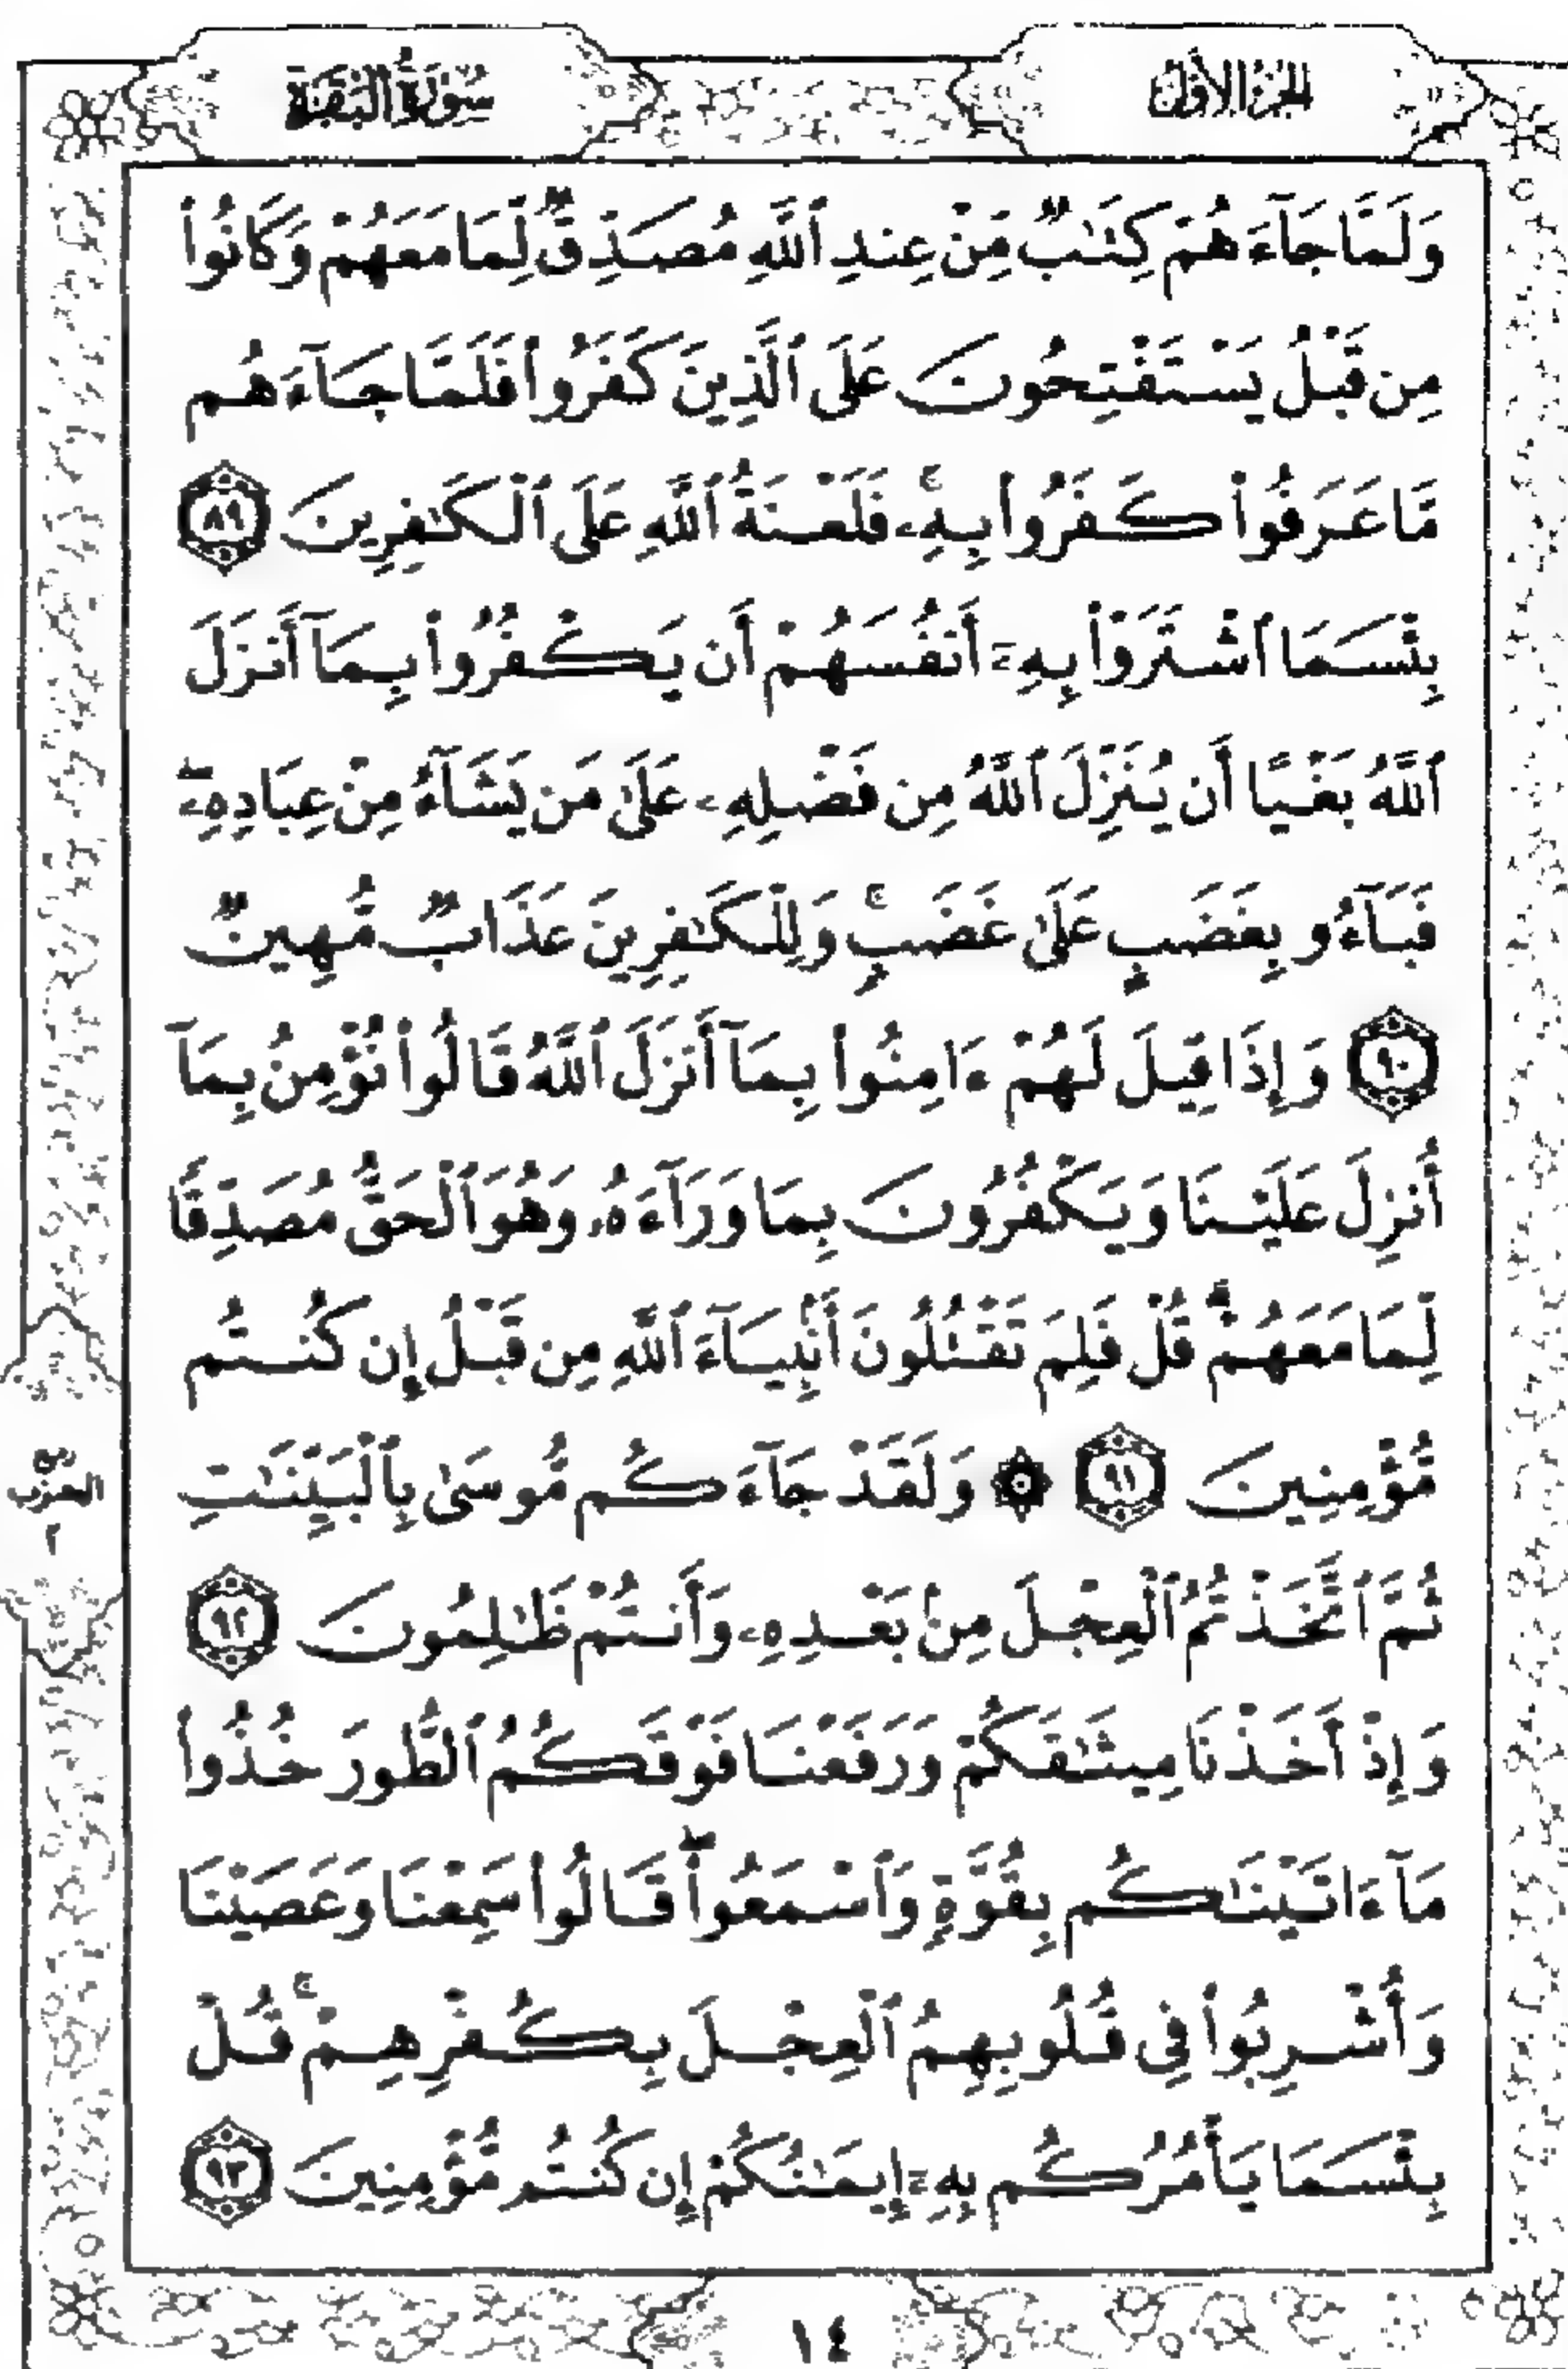 الجزء الأول
سورة البقرة
وَلَمَّا جَآءَهُمْ كِتَٰبٌ مِّنْ عِندِ ٱللَّهِ مُصَدِّقٌ لِّمَا مَعَهُمْ وَكَانُوا۟
مِن قَبْلُ يَسْتَفْتِحُونَ عَلَى ٱلَّذِينَ كَفَرُوا۟ فَلَمَّا جَآءَهُم
مَّا عَرَفُوا۟ كَفَرُوا۟ بِهِۦ ۚ فَلَعْنَةُ ٱللَّهِ عَلَى ٱلْكَٰفِرِينَ ٨٩
بِئْسَمَا ٱشْتَرَوْا۟ بِهِۦٓ أَنفُسَهُمْ أَن يَكْفُرُوا۟ بِمَآ أَنزَلَ
ٱللَّهُ بَغْيًا أَن يُنَزِّلَ ٱللَّهُ مِن فَضْلِهِۦ عَلَىٰ مَن يَشَآءُ مِنْ عِبَادِهِۦ ۖ
فَبَآءُو بِغَضَبٍ عَلَىٰ غَضَبٍ ۚ وَلِلْكَٰفِرِينَ عَذَابٌ مُّهِينٌ
٩٠ وَإِذَا قِيلَ لَهُمْ ءَامِنُوا۟ بِمَآ أَنزَلَ ٱللَّهُ قَالُوا۟ نُؤْمِنُ بِمَآ
أُنزِلَ عَلَيْنَا وَيَكْفُرُونَ بِمَا وَرَآءَهُۥ وَهُوَ ٱلْحَقُّ مُصَدِّقًا
لِّمَا مَعَهُمْ ۗ قُلْ فَلِمَ تَقْتُلُونَ أَنۢبِيَآءَ ٱللَّهِ مِن قَبْلُ إِن كُنتُم
مُّؤْمِنِينَ ٩١ ۞ وَلَقَدْ جَآءَكُم مُّوسَىٰ بِٱلْبَيِّنَٰتِ
ثُمَّ ٱتَّخَذْتُمُ ٱلْعِجْلَ مِنۢ بَعْدِهِۦ وَأَنتُمْ ظَٰلِمُونَ ٩٢
وَإِذْ أَخَذْنَا مِيثَٰقَكُمْ وَرَفَعْنَا فَوْقَكُمُ ٱلطُّورَ خُذُوا۟
مَآ ءَاتَيْنَٰكُم بِقُوَّةٍ وَٱسْمَعُوا۟ ۖ قَالُوا۟ سَمِعْنَا وَعَصَيْنَا
وَأُشْرِبُوا۟ فِى قُلُوبِهِمُ ٱلْعِجْلَ بِكُفْرِهِمْ ۚ قُلْ
بِئْسَمَا يَأْمُرُكُم بِهِۦٓ إِيمَٰنُكُمْ إِن كُنتُم مُّؤْمِنِينَ ٩٣
الحزب
٢
١٤